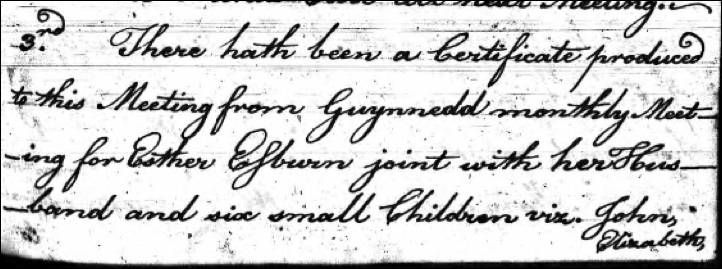 near Meeting.
3.rd There hath been a Certificate produced
to this Meeting from Guynnedd monthly Meet-
-ing for Esther Esburn joint with her Hus-
-band and six small Children viz. John,
Elizabeth,